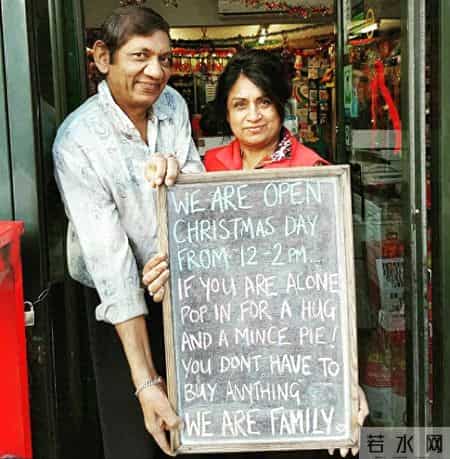 WE ARE OPEN
CHRISTMAS DAY
FROM 12-2PM...
IF YOU ARE ALONE
POP IN FOR A HUG
AND A MINCE PIE!
YOU DONT HAVE TO
BUY ANYTHING
WE ARE FAMILY
若水网